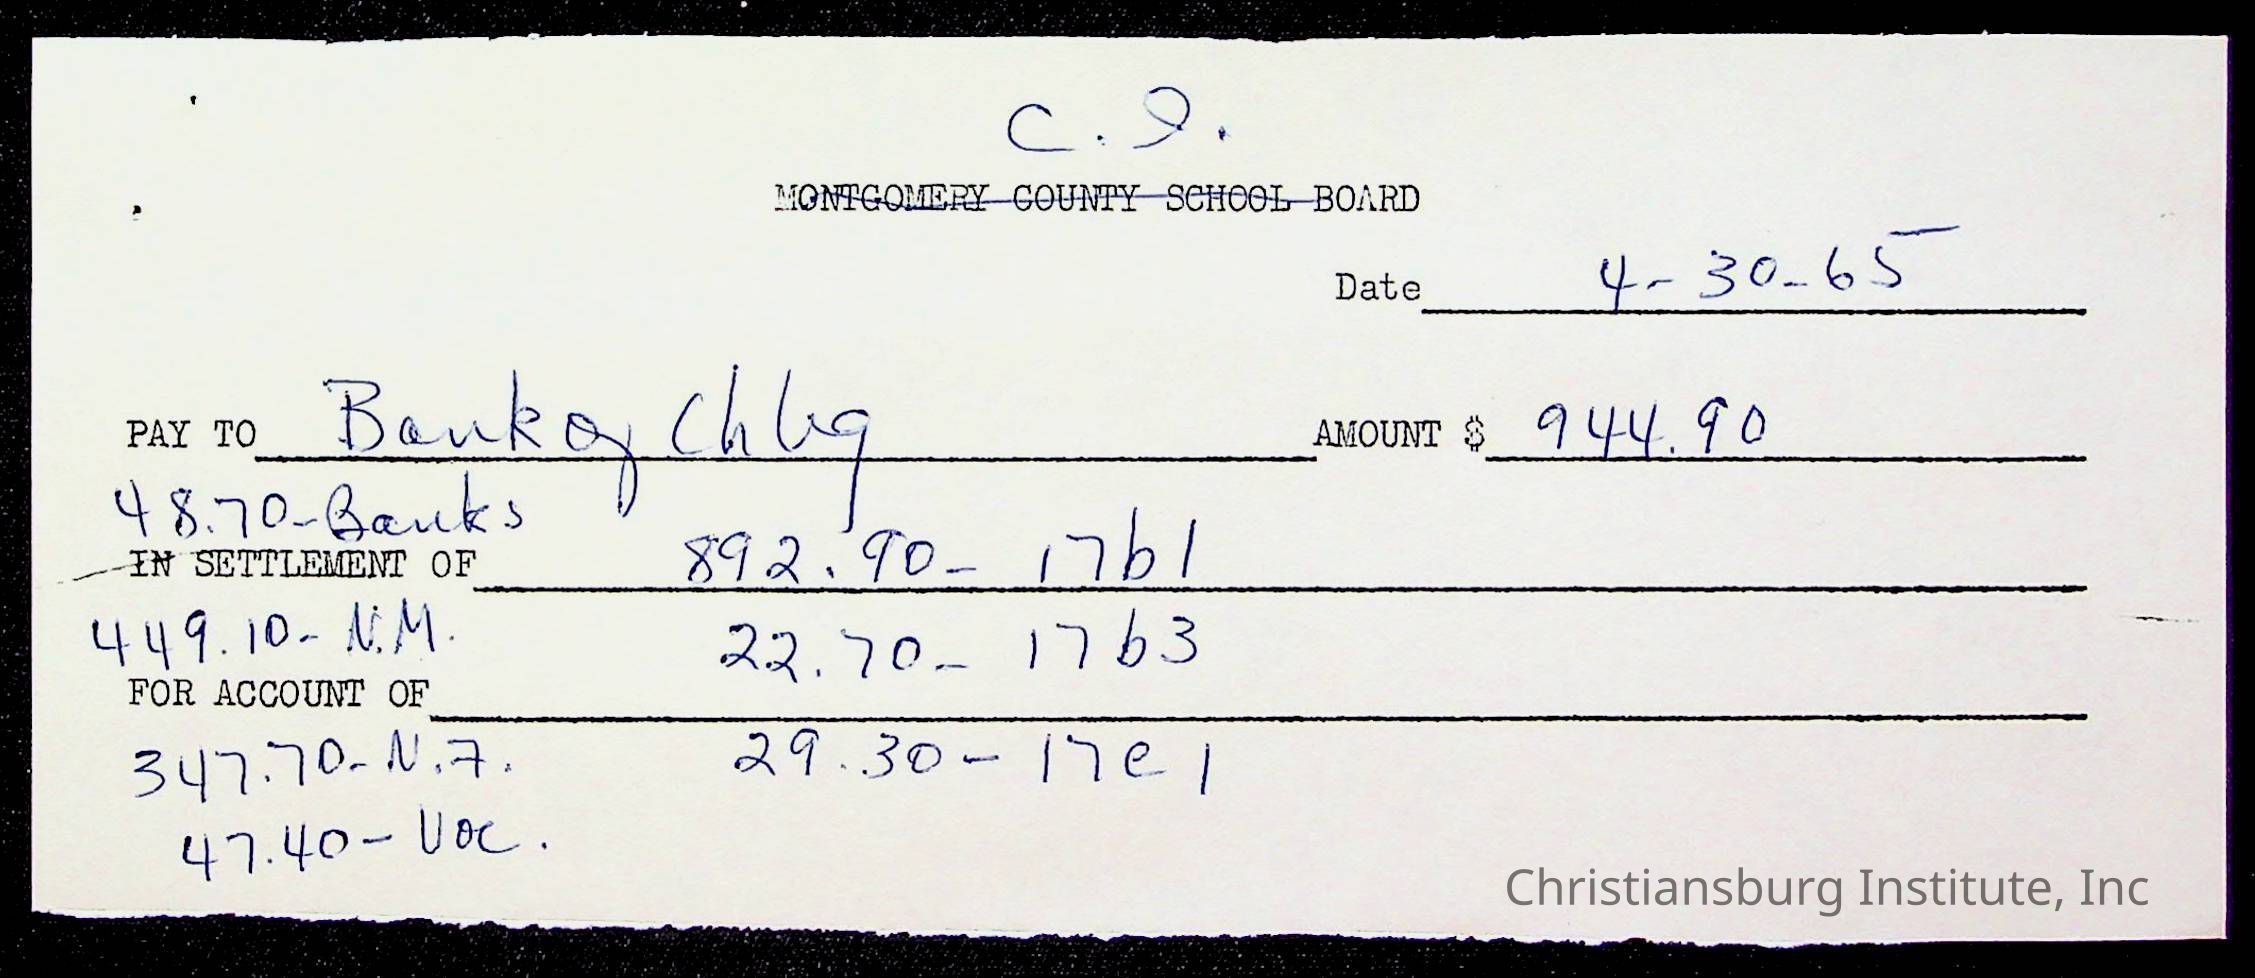 C. I.
MONTGOMERY COUNTY SCHOOL BOARD
Date 4-30-65
PAY TO Bank of Chbg AMOUNT $ 944.90
48.70-Banks
IN SETTLEMENT OF 892.90- 17b1
449.10- N.M. 22.70- 17b3
FOR ACCOUNT OF
347.70- N.F. 29.30- 17e1
47.40- Voc.
Christiansburg Institute, Inc